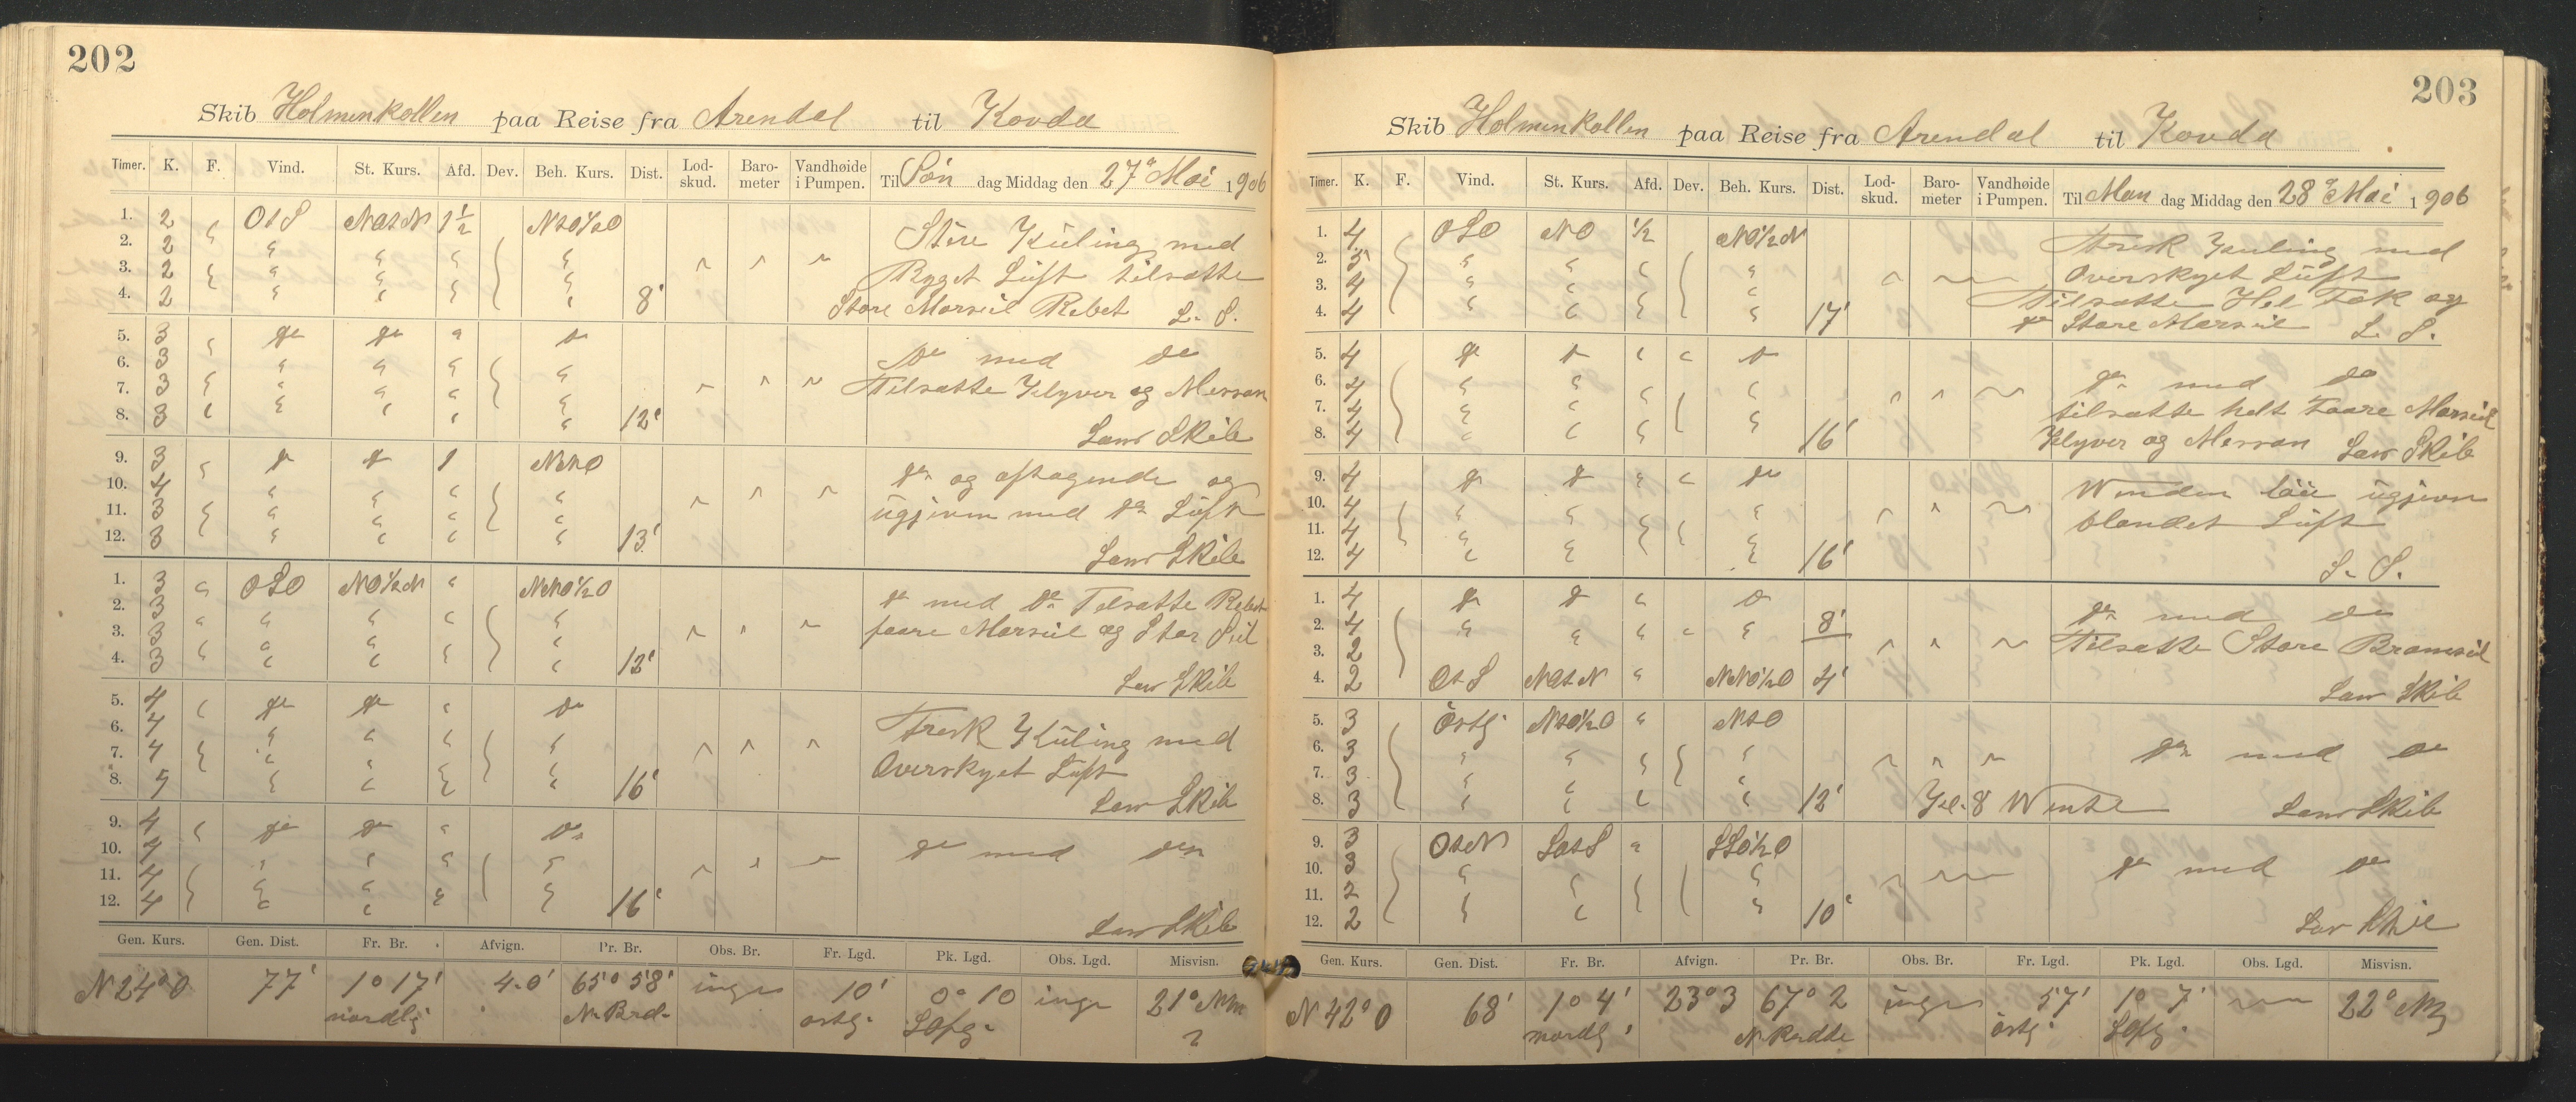 202
Skib Holmenkollen paa Reise fra Arendal til Kovda
Timer. K. F. Vind. St. Kurs. Afd. Dev. Beh. Kurs. Dist. Lod-skud. Baro-meter Vandhøide i Pumpen. Til Søn dag Middag den 27de Mai 1906
1. 2 " OtS NOtN 1 1/2 NtO½O Stire Kuling med
2. 2 " " " " "
3. 2 " " " " " Bygget Luft tilsatte
4. 2 " " " " 8' Store Mersseil Rebet L. S.
5. 3 " do do " do do med do
6. 3 " " " " "
7. 3 " " " " " Tilsatte Klyver og Messan
8. 3 " " " " " 12' Lens Skib
9. 3 " do do 1 NNO do og aftagende og
10. 4 " " " " "
11. 3 " " " " " ugjevn med do Luft
12. 3 " " " " 13' Lens Skib
1. 3 " OSO NO½N " NNO½O do med do Tilsatte Rebet
2. 3 " " " " "
3. 3 " " " " " faare Mersseil og Stor Seil
4. 3 " " " " " 12' Lens Skib
5. 4 " do do " do
6. 4 " " " " " Frisk Kuling med
7. 4 " " " " " Overskyet Luft
8. " " " " " 16' Lens Skib
9. 4 " do do " do
10. 4 " " " " do med do
11. 4 " " " "
12. 4 " " " " 16' Lens Skib
Gen. Kurs. Gen. Dist. Fr. Br. Afvign. Pr. Br. Obs. Br. Fr. Lgd. Pk. Lgd. Obs. Lgd. Misvisn.
N 24° O 77' 1° 17' 4.0' 65° 58' ingen 10' 0° 10 inge 21°
nordlig N. Brd. ostg.
203
Skib Holmenkollen paa Reise fra Arendal til Kovda
Timer. K. F. Vind. St. Kurs. Afd. Dev. Beh. Kurs. Dist. Lod-skud. Baro-meter Vandhøide i Pumpen. Til Man dag Middag den 28de Mai 1906
1. 4 OSO NO ½ NO½N Frisk Kuling med
2. 5 " " " " Overskyet Luft
3. 4 " " " " Tilsatte Hel Fok og
4. 4 " " " " 17' do Store Mersseil L. S.
5. 4 do do " " do
6. 4 " " " " do med do
7. 4 " " " " tilsatte helt Faare Mersseil
8. 4 " " " " 16' Klyver og Messan Lens Skib
9. 4 do do " " do
10. 4 " " " " Winden løi ugjevn
11. 4 " " " " blandet Luft
12. 4 " " " " 16' L. S.
1. 4 do do " do do med do
2. 4 " " " " " 8'
3. 2 Tilsatte Store Bramseil
4. 2 OtS NOtN " NNO½O 4' Lens Skib
5. 3 Østg. NtO½O " NtO
6. 3 " " " " do med do
7. 3 " " " "
8. 3 " " " " 12' Kl. 8 Wendte Lens Skib
9. 3 OtN SOtS " SSO½O
10. 3 " " " " do med do
11. 2 " " " "
12. 2 " " " " 10' Lens Skib
Gen. Kurs. Gen. Dist. Fr. Br. Afvign. Pr. Br. Obs. Br. Fr. Lgd. Pk. Lgd. Obs. Lgd. Misvisn.
N 42° O 68' 1° 4' 23° 3 67° 2 ingen 57' 1° 7' 22°
nordlg. østg.